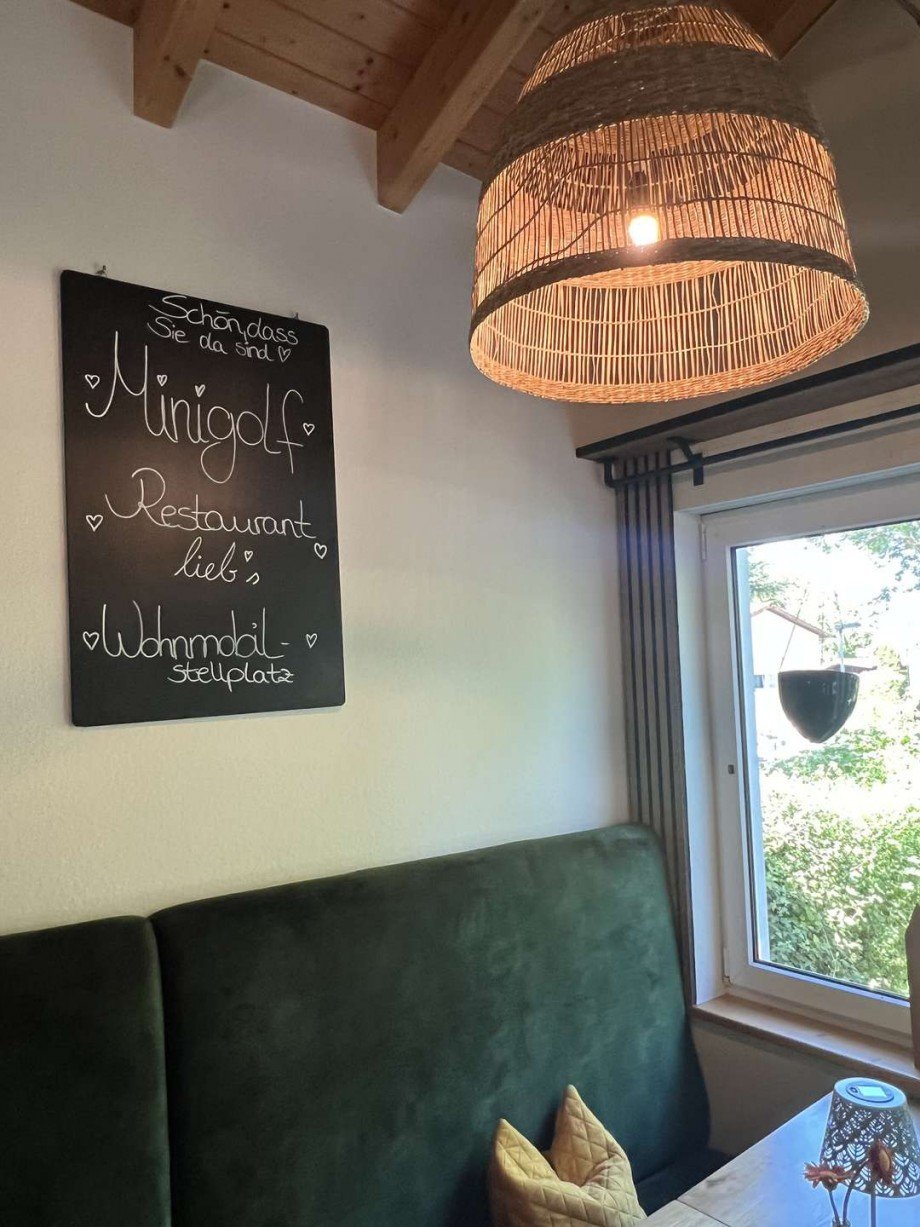 Schön, dass
Sie da sind ♡
Minigolf
Restaurant
lieb's
Wohnmobil-
stellplatz